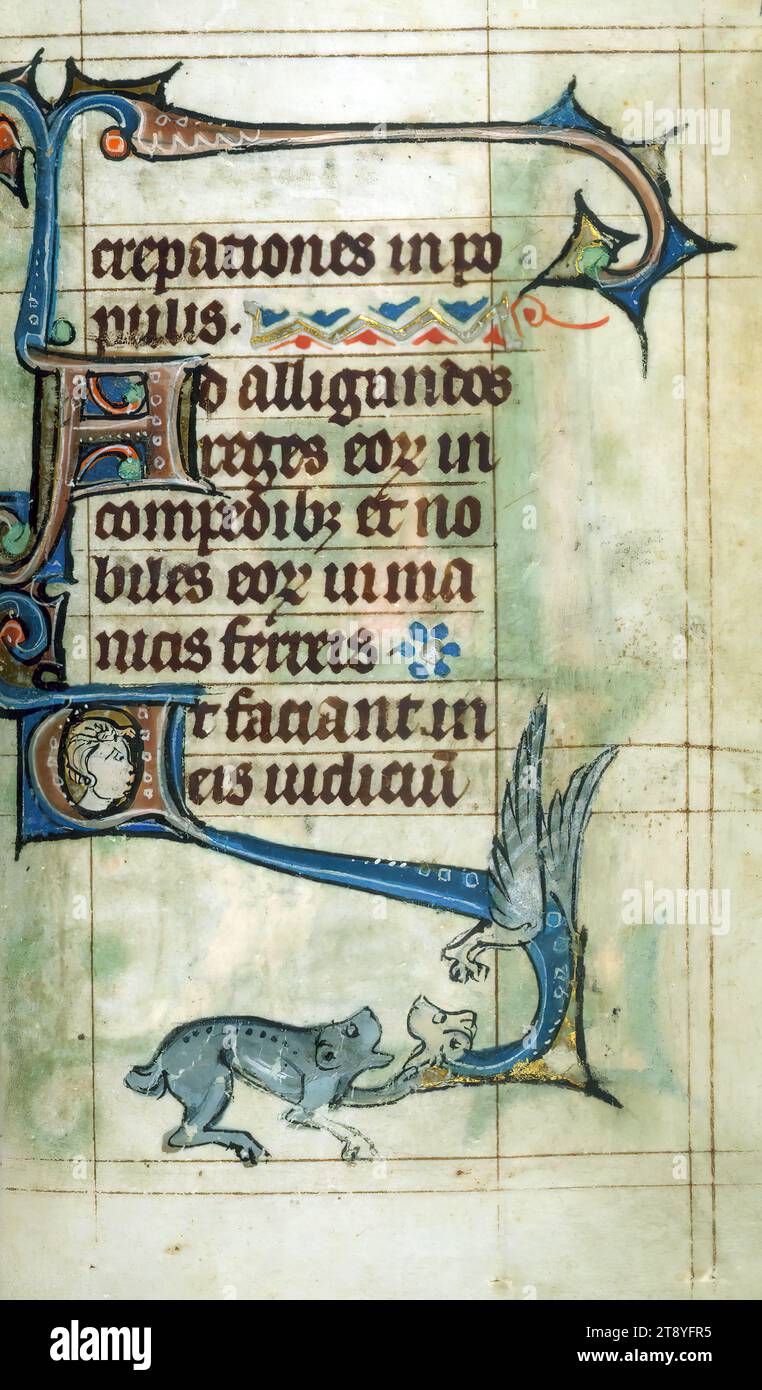 crepationes in po
pulis.
Ad alligandos
reges eoꝝ in
compedibꝫ et no
biles eoꝝ in ma
nicis ferreis
Ut faciant in
eis iudiciū
alamy
alamy
alamy
a
a
a
alamy
Image ID: 2T8YFR5
www.alamy.com